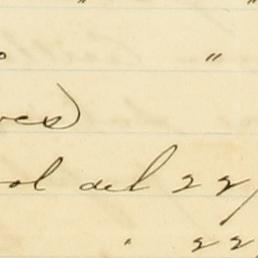 " "
"
ves)
ol del 22/
" 22/